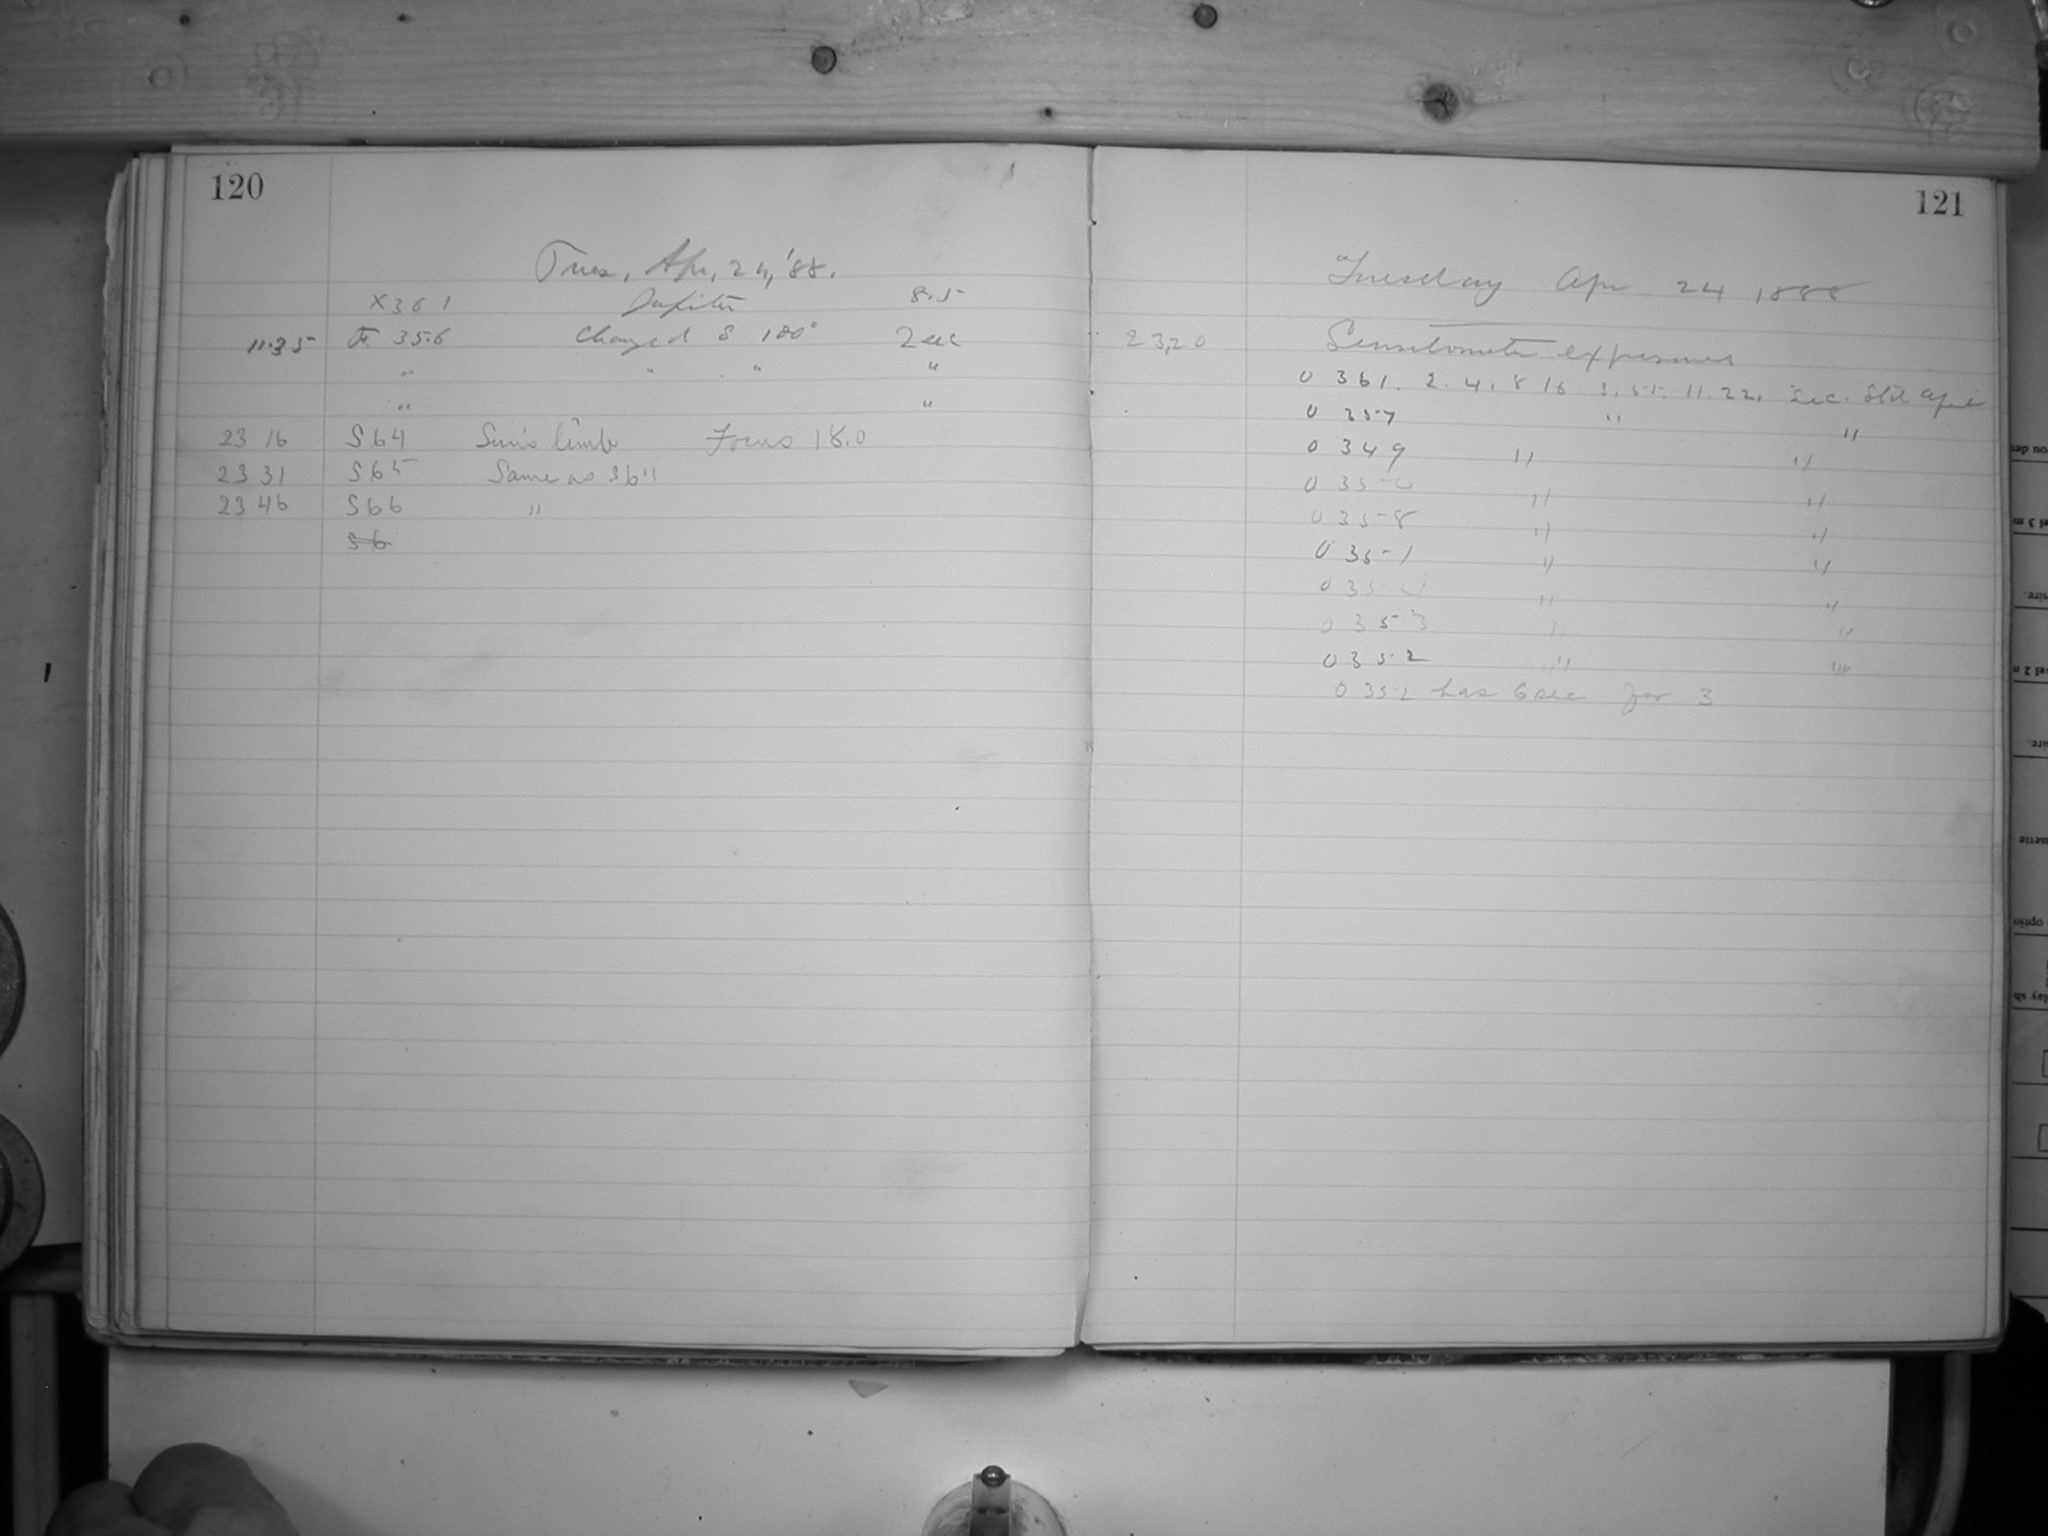 120
Tues, Apr, 24, '88.
X361 Jupiter 8.5
11.35 Fr. 356 Changed S 180° 2sec
" " " "
" "
23 16 S64 Sun's limb Focus 18.0
23 31 S65 Same as S64
23 46 S66 "
S6
121
Tuesday Apr 24 1888
23,20 Sensitometer exposures
0 361. 2. 4. 8 16 3. 5.5. 11. 22. Sec.
0 357 " "
0 349 " "
0 350 " "
0 358 " "
0 351 " "
0 " "
0 353 " "
0 352 " "
0 352 has 6 sec for 3